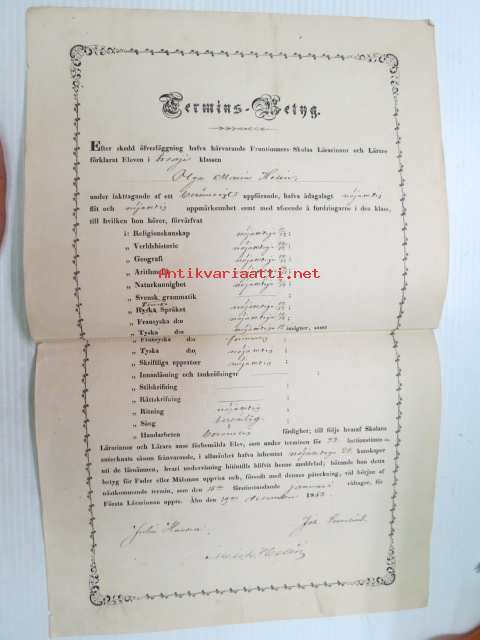 Termins-Betyg.
Efter skedd öfverläggning hafva härvarande Fruntimmers-Skolas Lärarinnor och Lärare
förklarat Eleven i tredje klassen
Olga Maria Helin,
under iakttagande af ett berömligt uppförande, hafva ådagalagt nöjaktig
flit och nöjaktig uppmärksamhet samt med afseende å fordringarne i den klass,
till hvilken hon hörer, förvärfvat
i: Religionskunskap nöjaktige
„ Verldshistorie nöjaktige
„ Geografi nöjaktige
„ Arithmetik nöjaktige
„ Naturkunnighet nöjaktige
Antikvariaatti.net
„ Svensk grammatik
„ Ryska Språket nöjaktige
„ Fransyska d:o nöjaktige
„ Tyska d:o nöjaktige insigter, samt
„ Fransyska d:o
„ Tyska d:o nöjaktig
„ Skriftliga uppsatser nöjaktig
„ Innanläsning och tankeöfningar
„ Stilskrifning
„ Rättskrifning
„ Ritning nöjaktig
„ Sång berömlig
„ Handarbeten berömlig färdighet; till följe hvaraf Skolans
Lärarinnor och Lärare anse förbemälda Elev, som under terminen för 22 lectionstimmar
antecknats såsom frånvarande, i allmänhet hafva inhemtat nöjaktige kunskaper
uti de läroämnen, hvari undervisning blifvit henne meddelad; hörande hon detta
betyg för Fader eller Målsman uppvisa och, försedt med dennes påteckning, vid början af
nästkommande termin, som den 15de förestundande januarii vidtager, för
Första Lärarinnan uppte. Åbo den 19de december